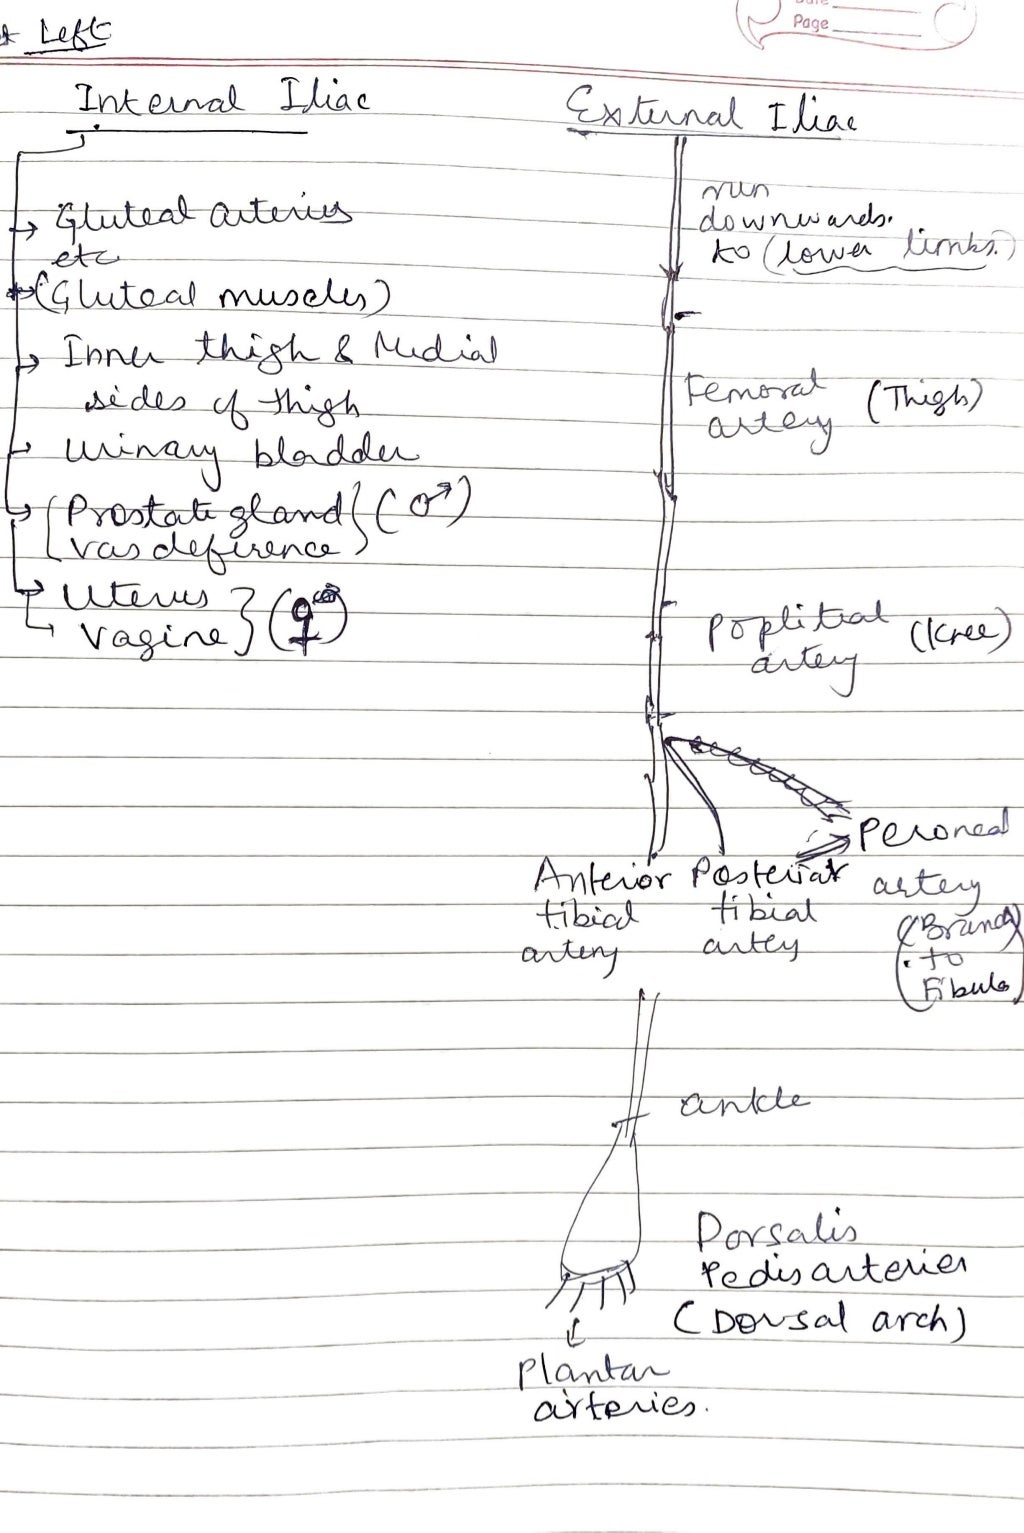 Left
Page
Internal Iliac
Gluteal arteries
etc
(Gluteal muscles)
Inner thigh & Medial
sides of thigh
Urinary bladder
Prostate gland (♂)
vas deference
Uterus
Vagine (♀)
External Iliac
run
downwards.
to (lower limbs.)
Femoral (Thigh)
artery
Popliteal (Knee)
artery
Anterior
tibial
artery
Posterior
tibial
artey
Peroneal
artery
(Branch
to
Fibula)
ankle
Dorsalis
Pedis arteries
(Dorsal arch)
Plantar
arteries.